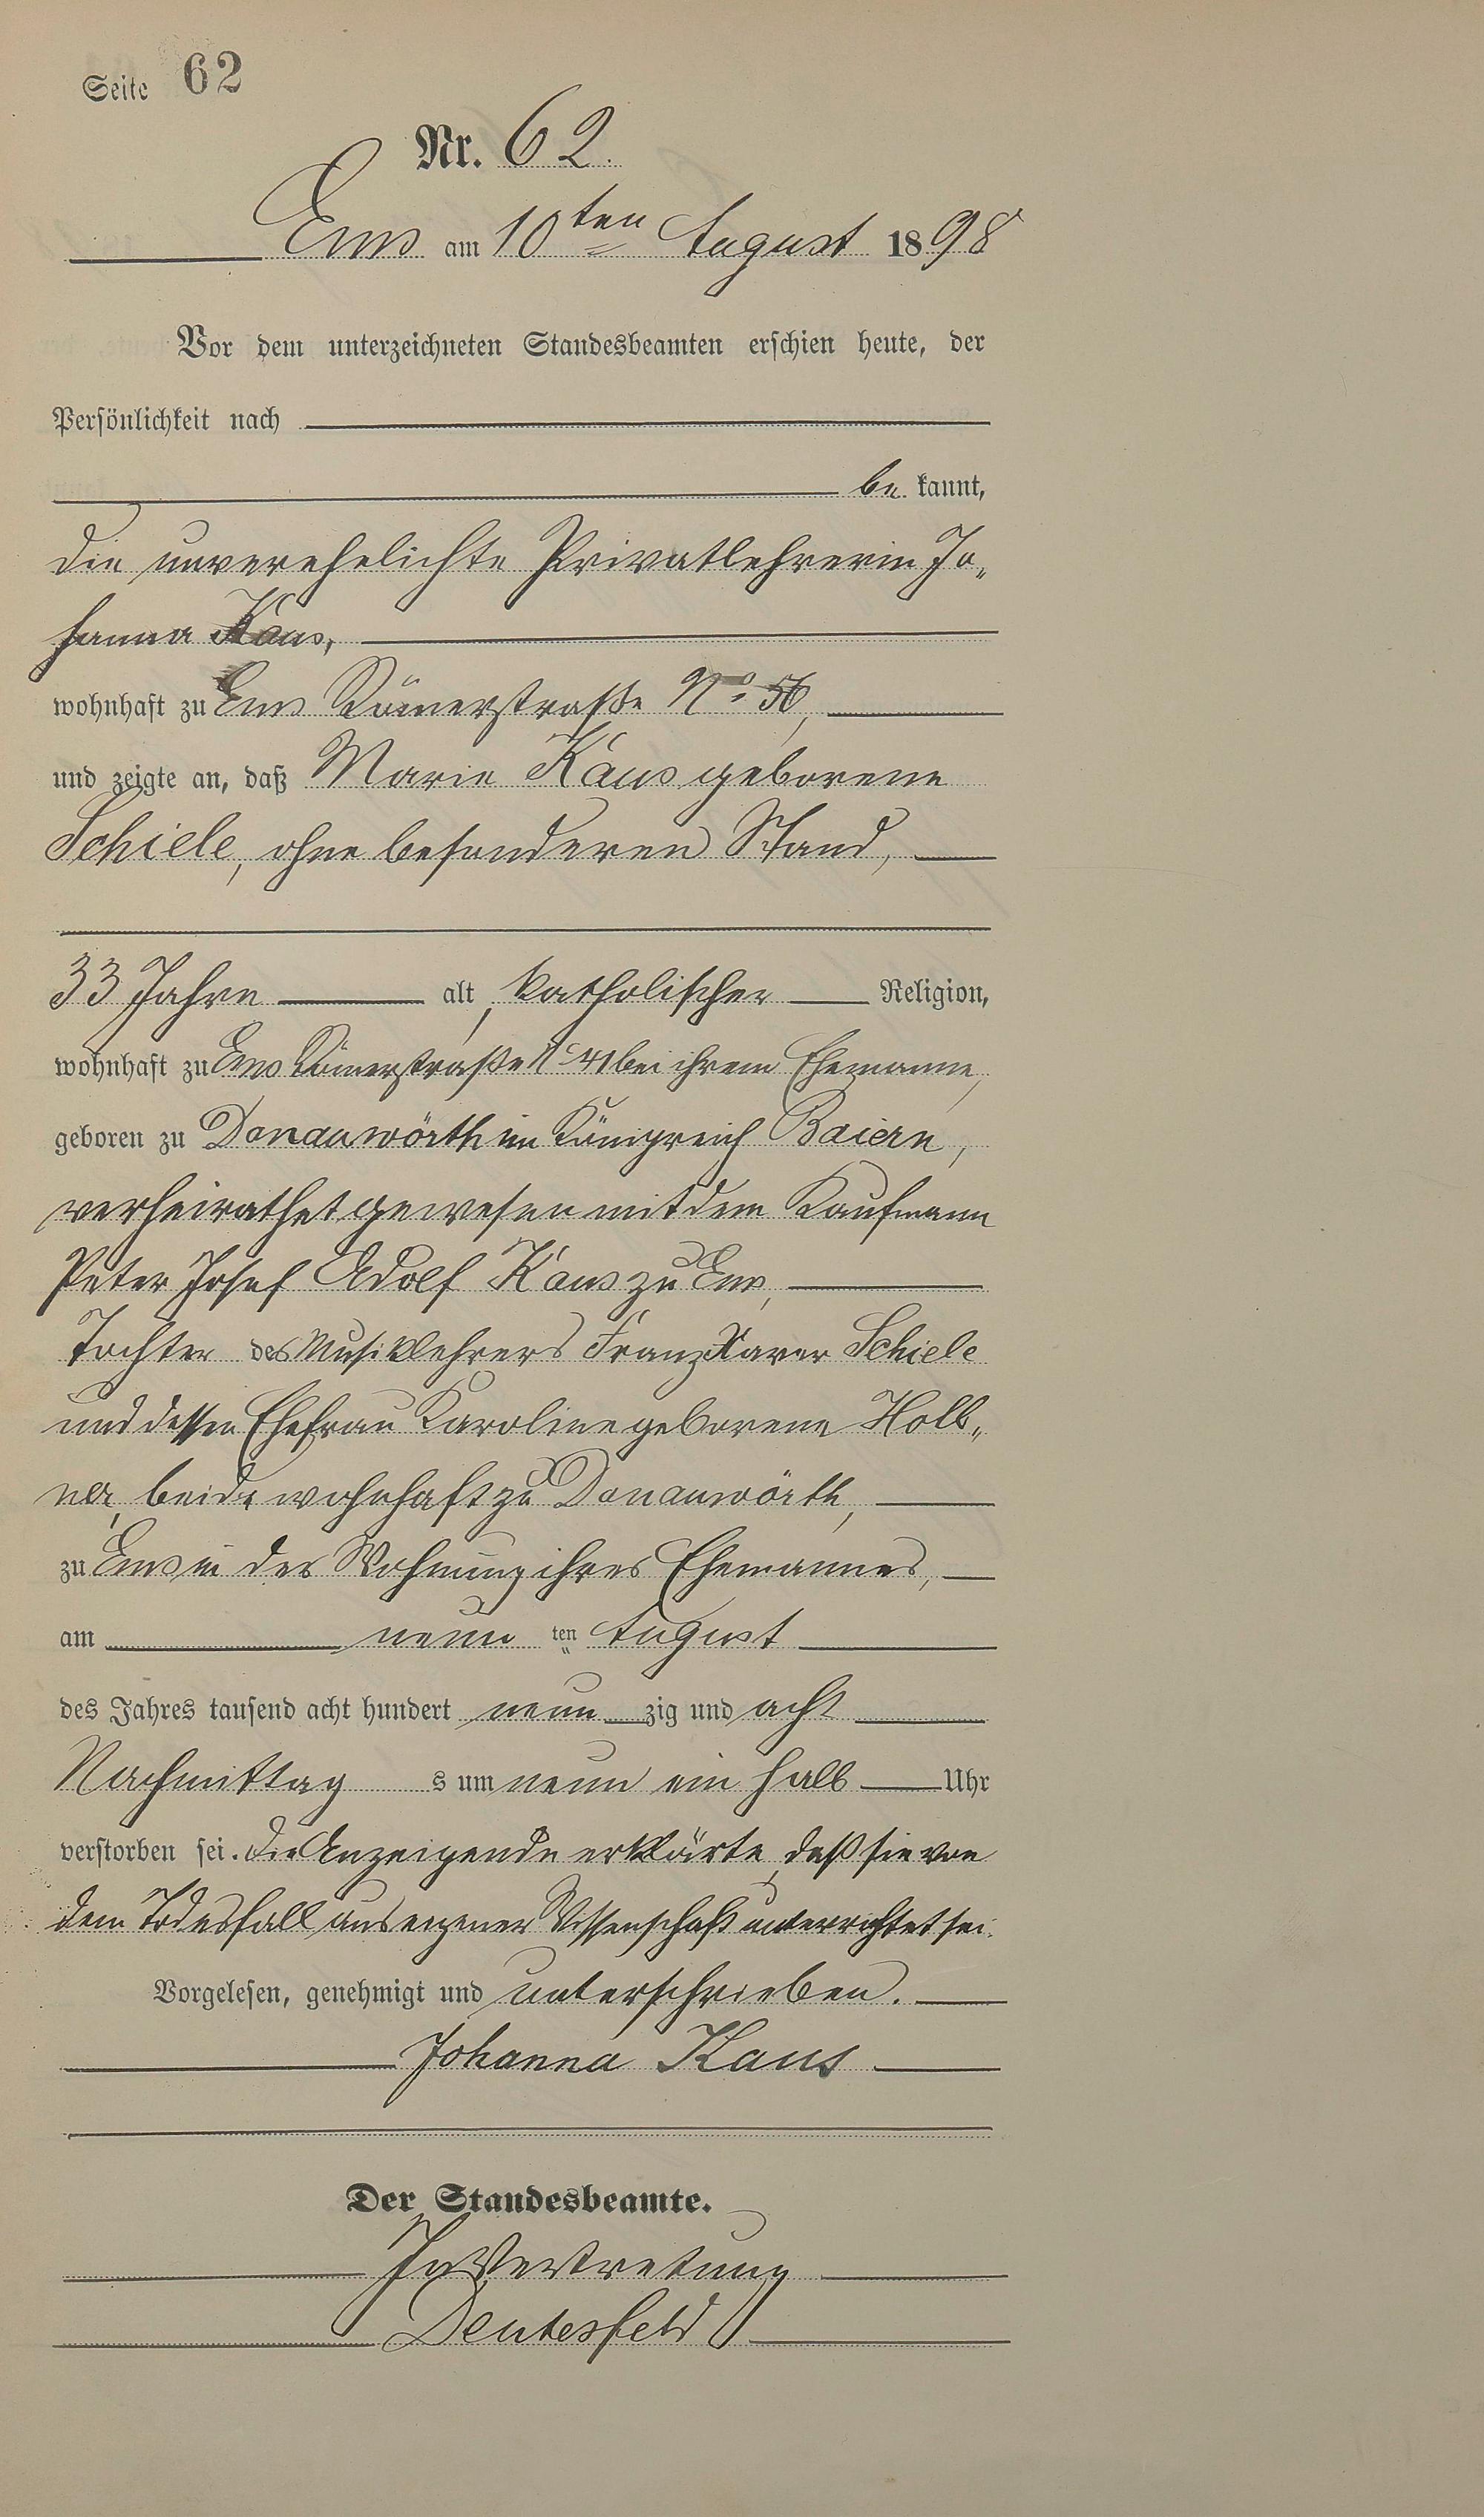 Seite 62
Nr. 62.
Ems am 10ten August 1898
Vor dem unterzeichneten Standesbeamten erschien heute, der
Persönlichkeit nach
be kannt,
die unverehelichte Privatlehrerin Jo„
hanna Kaus,
wohnhaft zu Ems Römerstraße No 56,
und zeigte an, daß Marie Kaus geborene
Schiele, ohne besonderen Stand,
33 Jahre alt, katholischer Religion,
wohnhaft zu Ems Römerstraße No 41 bei ihrem Ehemanne,
geboren zu Donauwörth im Königreich Baiern,
verheirathet gewesen mit dem Kaufmann
Peter Josef Adolf Kaus zu Ems,
Tochter des Musiklehrers Franz Xaver Schiele
und dessen Ehefrau Karoline geborene Holb„
ner, beide wohnhaft zu Donauwörth,
zu Ems in der Wohnung ihres Ehemannes,
am neun ten August
des Jahres tausend acht hundert neun zig und acht
Nachmittag s um neun ein halb Uhr
verstorben sei. Die Anzeigende erklärte, daß sie von
dem Todesfall aus eigener Wissenschaft unterrichtet sei.
Vorgelesen, genehmigt und unterschrieben.
Johanna Kaus
Der Standesbeamte.
In Vertretung
Deutesfeld